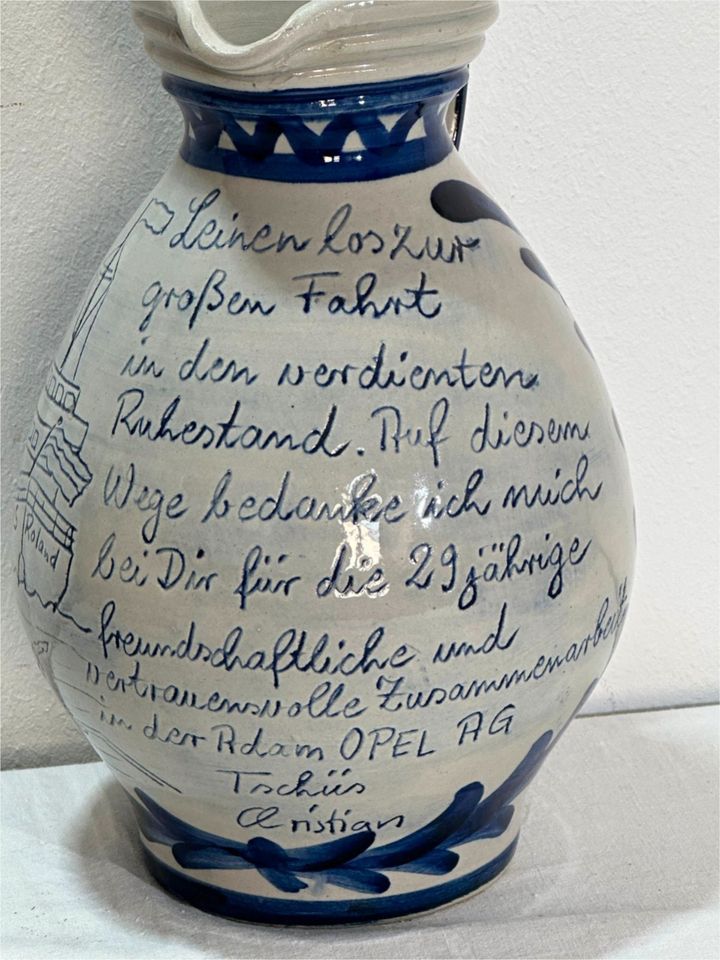 Leinen los zur
großen Fahrt
in den verdienten
Ruhestand. Auf diesem
Wege bedanke ich mich
bei Dir für die 29jährige
freundschaftliche und
vertrauensvolle Zusammenarbeit
in der Adam OPEL AG
Tschüs
Christian
Roland